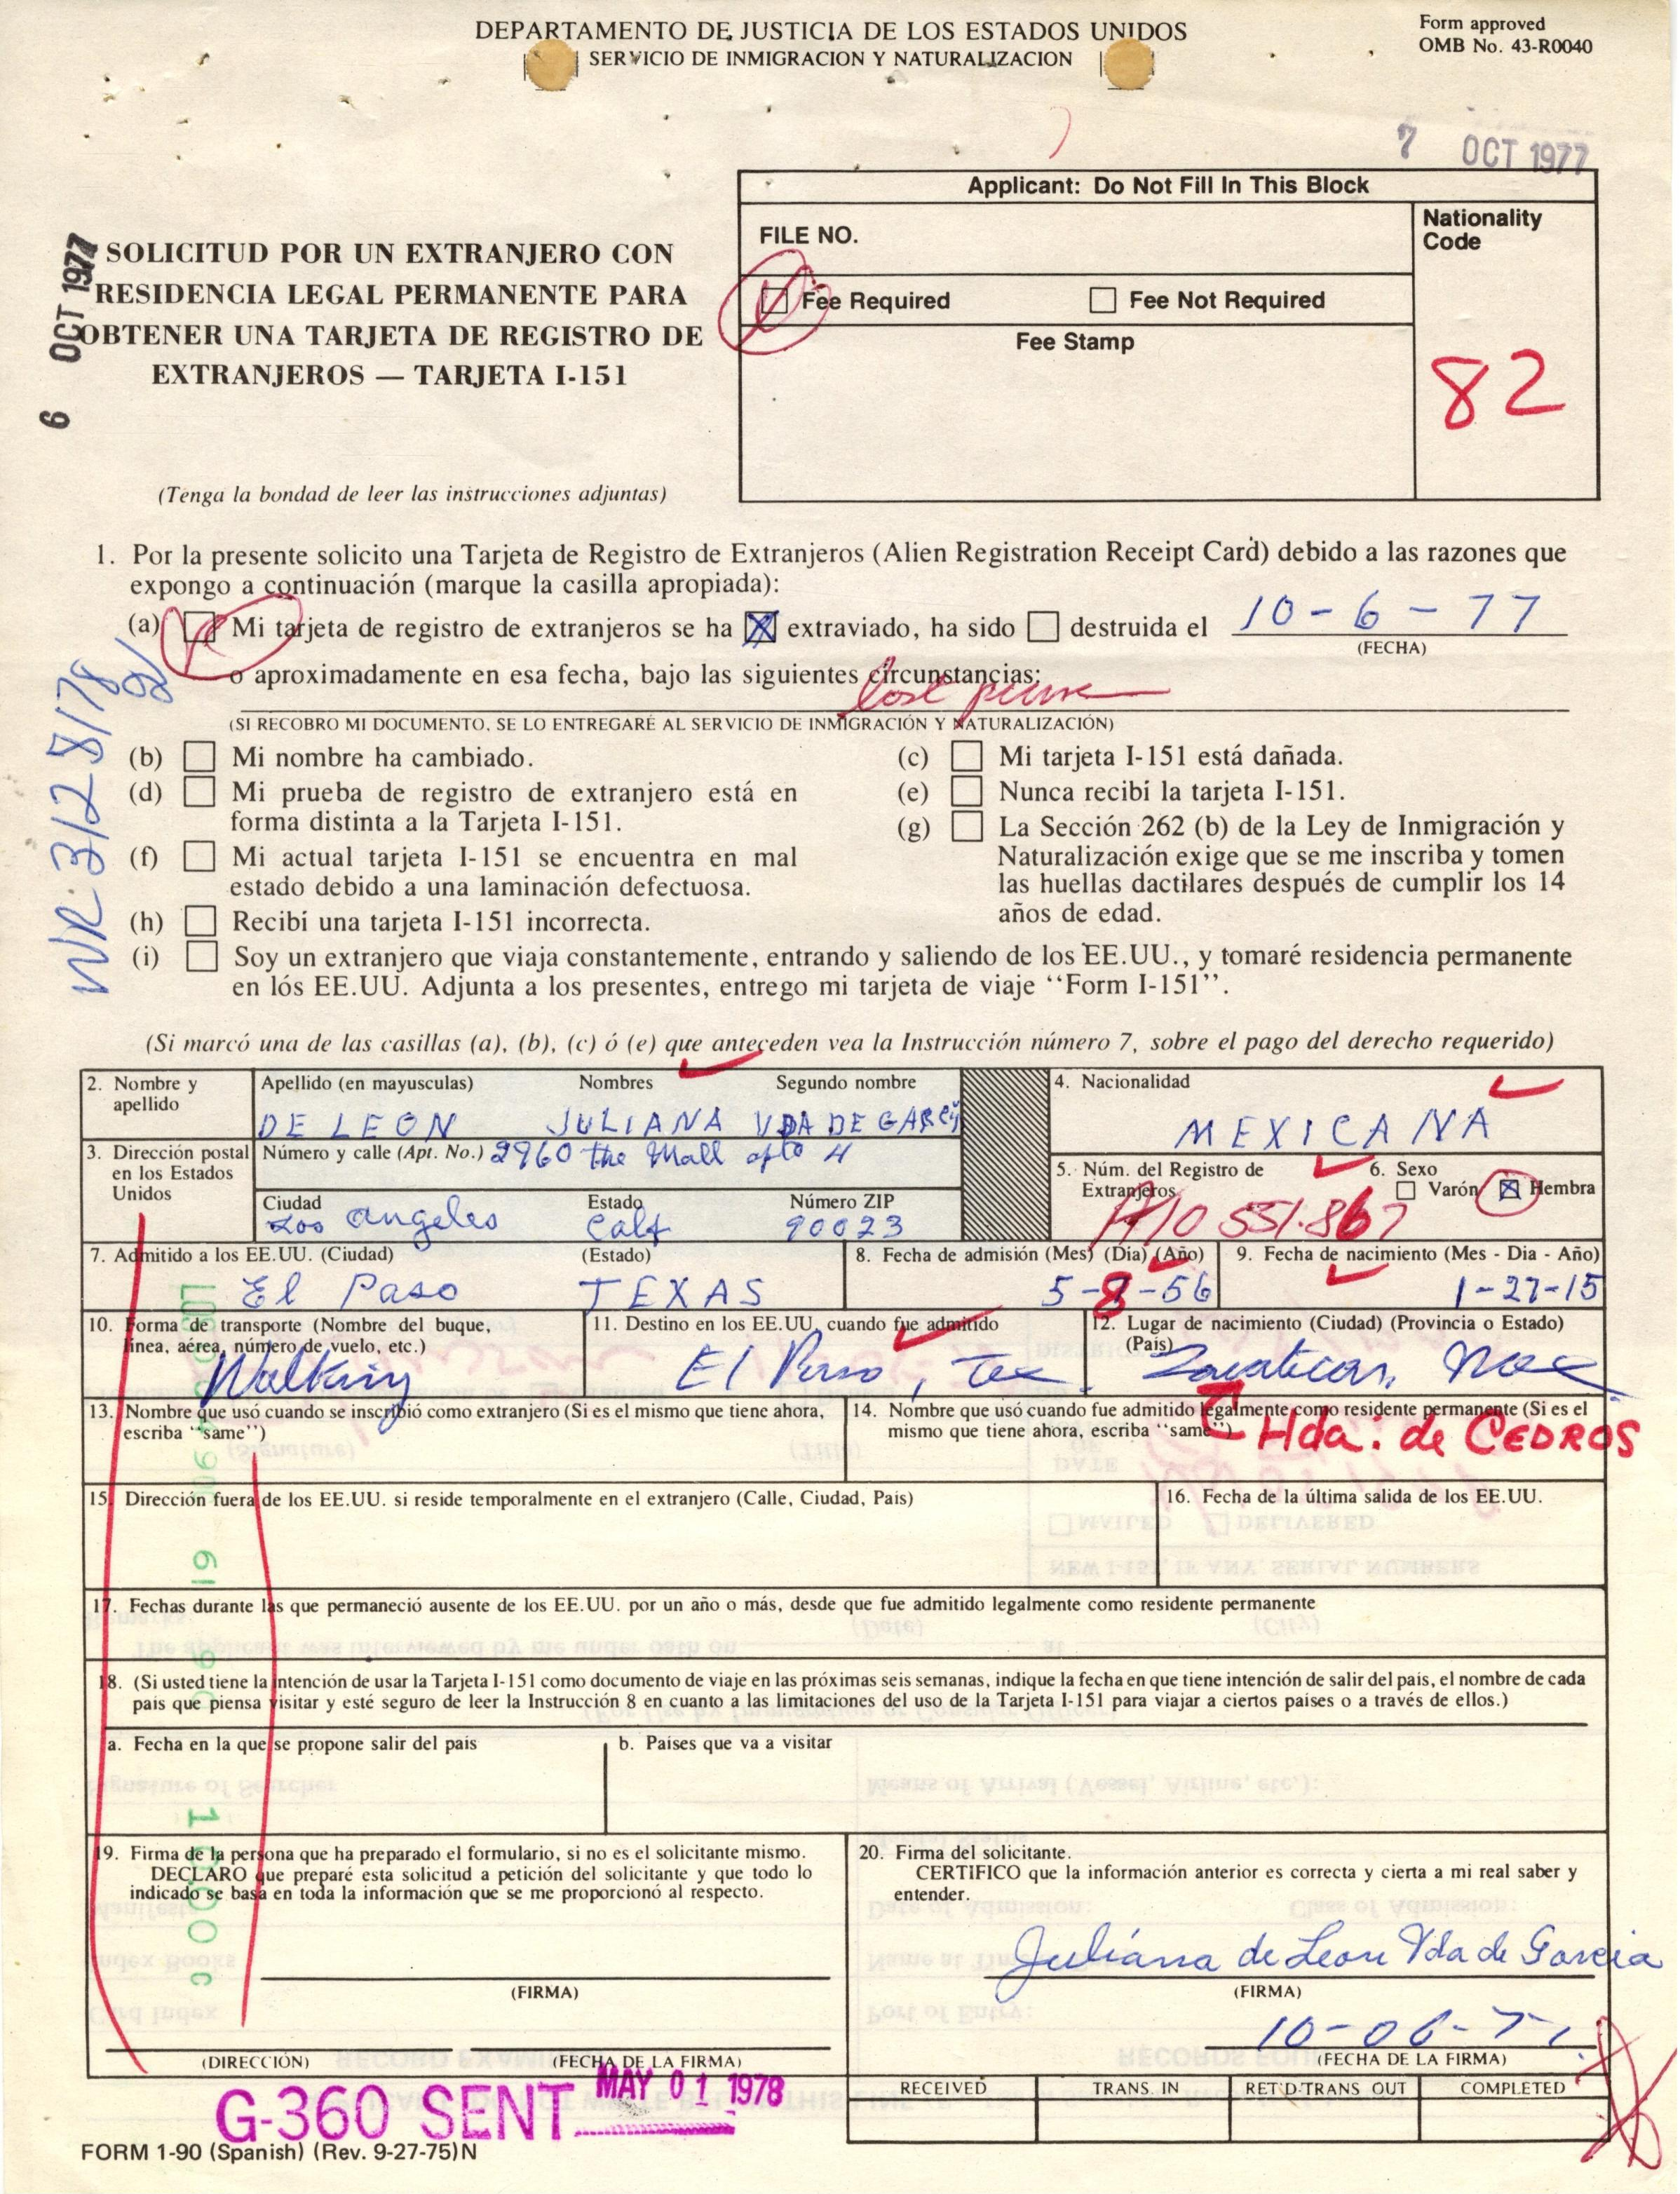 DEPARTAMENTO DE JUSTICIA DE LOS ESTADOS UNIDOS
SERVICIO DE INMIGRACION Y NATURALIZACION
Form approved
OMB No. 43-R0040
7 OCT 1977
6 OCT 1977
SOLICITUD POR UN EXTRANJERO CON
RESIDENCIA LEGAL PERMANENTE PARA
OBTENER UNA TARJETA DE REGISTRO DE
EXTRANJEROS — TARJETA I-151
(Tenga la bondad de leer las instrucciones adjuntas)
Applicant: Do Not Fill In This Block
FILE NO.
Nationality
Code
Fee Required
Fee Not Required
Fee Stamp
82
1. Por la presente solicito una Tarjeta de Registro de Extranjeros (Alien Registration Receipt Card) debido a las razones que
expongo a continuación (marque la casilla apropiada):
(a) Mi tarjeta de registro de extranjeros se ha extraviado, ha sido destruida el 10-6-77
(FECHA)
o aproximadamente en esa fecha, bajo las siguientes circunstancias:
lost purse
(SI RECOBRO MI DOCUMENTO, SE LO ENTREGARÉ AL SERVICIO DE INMIGRACIÓN Y NATURALIZACIÓN)
WR 3/28/78
(b) Mi nombre ha cambiado.
(c) Mi tarjeta I-151 está dañada.
(d) Mi prueba de registro de extranjero está en
forma distinta a la Tarjeta I-151.
(e) Nunca recibí la tarjeta I-151.
(f) Mi actual tarjeta I-151 se encuentra en mal
estado debido a una laminación defectuosa.
(g) La Sección 262 (b) de la Ley de Inmigración y
Naturalización exige que se me inscriba y tomen
las huellas dactilares después de cumplir los 14
años de edad.
(h) Recibí una tarjeta I-151 incorrecta.
(i) Soy un extranjero que viaja constantemente, entrando y saliendo de los EE.UU., y tomaré residencia permanente
en lós EE.UU. Adjunta a los presentes, entrego mi tarjeta de viaje “Form I-151”.
(Si marcó una de las casillas (a), (b), (c) ó (e) que anteceden vea la Instrucción número 7, sobre el pago del derecho requerido)
2. Nombre y
apellido
Apellido (en mayusculas) Nombres Segundo nombre
DE LEON JULIANA VDA DE GARCÍA
4. Nacionalidad
MEXICANA
3. Dirección postal
en los Estados
Unidos
Número y calle (Apt. No.) 2960 the Mall apto 4
Ciudad Estado Número ZIP
Los angeles Calf 90023
5. Núm. del Registro de
Extranjeros
A10 551.867
6. Sexo
Varón Hembra
7. Admitido a los EE.UU. (Ciudad) (Estado)
El Paso TEXAS
8. Fecha de admisión (Mes) (Dia) (Año)
5-8-56
9. Fecha de nacimiento (Mes - Dia - Año)
1-27-15
10. Forma de transporte (Nombre del buque,
línea, aérea, número de vuelo, etc.)
Walking
11. Destino en los EE.UU. cuando fue admitido
El Paso, Tex
12. Lugar de nacimiento (Ciudad) (Provincia o Estado)
(País)
Zacatecas, Mex
Hda. de CEDROS
13. Nombre que usó cuando se inscribió como extranjero (Si es el mismo que tiene ahora,
escriba “same”)
14. Nombre que usó cuando fue admitido legalmente como residente permanente (Si es el
mismo que tiene ahora, escriba “same”)
15. Dirección fuera de los EE.UU. si reside temporalmente en el extranjero (Calle, Ciudad, Pais)
16. Fecha de la última salida de los EE.UU.
17. Fechas durante las que permaneció ausente de los EE.UU. por un año o más, desde que fue admitido legalmente como residente permanente
18. (Si usted tiene la intención de usar la Tarjeta I-151 como documento de viaje en las próximas seis semanas, indique la fecha en que tiene intención de salir del país, el nombre de cada
pais que piensa visitar y esté seguro de leer la Instrucción 8 en cuanto a las limitaciones del uso de la Tarjeta I-151 para viajar a ciertos países o a través de ellos.)
a. Fecha en la que se propone salir del pais
b. Países que va a visitar
19. Firma de la persona que ha preparado el formulario, si no es el solicitante mismo.
DECLARO que preparé esta solicitud a petición del solicitante y que todo lo
indicado se basa en toda la información que se me proporcionó al respecto.
(FIRMA)
(DIRECCIÓN) (FECHA DE LA FIRMA)
20. Firma del solicitante.
CERTIFICO que la información anterior es correcta y cierta a mi real saber y
entender.
Juliana de Leon Vda de Garcia
(FIRMA)
10-06-77
(FECHA DE LA FIRMA)
RECEIVED TRANS. IN RET'D-TRANS. OUT COMPLETED
G-360 SENT MAY 01 1978
FORM 1-90 (Spanish) (Rev. 9-27-75)N